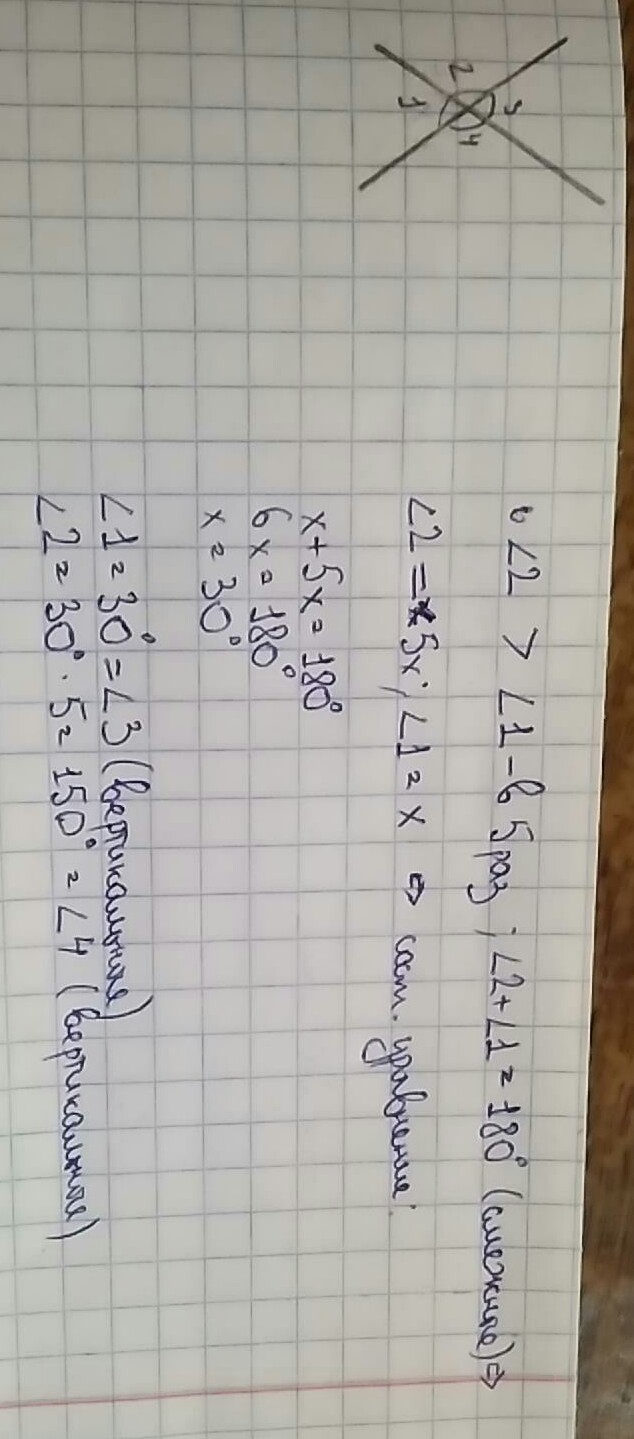 2
1
3
4
∠2 > ∠1 - в 5 раз ; ∠2+∠1 = 180° (смежные) ⇒
∠2 = 5x ; ∠1 = x ⇒ сост. уравнение:
x + 5x = 180°
6x = 180°
x = 30°
∠1 = 30° = ∠3 (вертикальные)
∠2 = 30° · 5 = 150° = ∠4 (вертикальные)